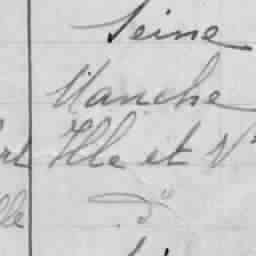 Seine
Manche
Ille et V
d°